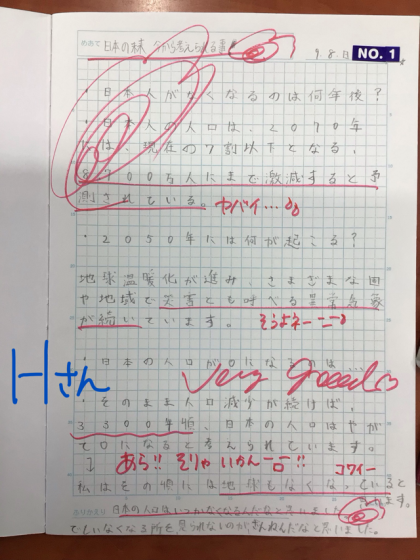 めあて 日本の未 今から考えられる事
9.8.日
NO. 1
・日本人がなくなるのは何年後?
・日本人の人口は、2070年
には、現在の7割以下となる、
8700万人にまで激減すると予
測されている。 ヤバイ…
・2050年には何が起こる?
地球温暖化が進み、さまざまな国
や地域で災害とも呼べる異常気象
が続いています。 そうよネー
・日本の人口が0になるのは…
Hさん
Very Good
・そのまま人口減少が続けば、
3300年頃、日本の人口はやが
て0になると考えられています。
↓
あら!! そりゃ いかん!! コワイー
私はその頃には地球もなくなっていると
思います。
ふりかえり 日本の人口はいつかなくなるんだなと思いました